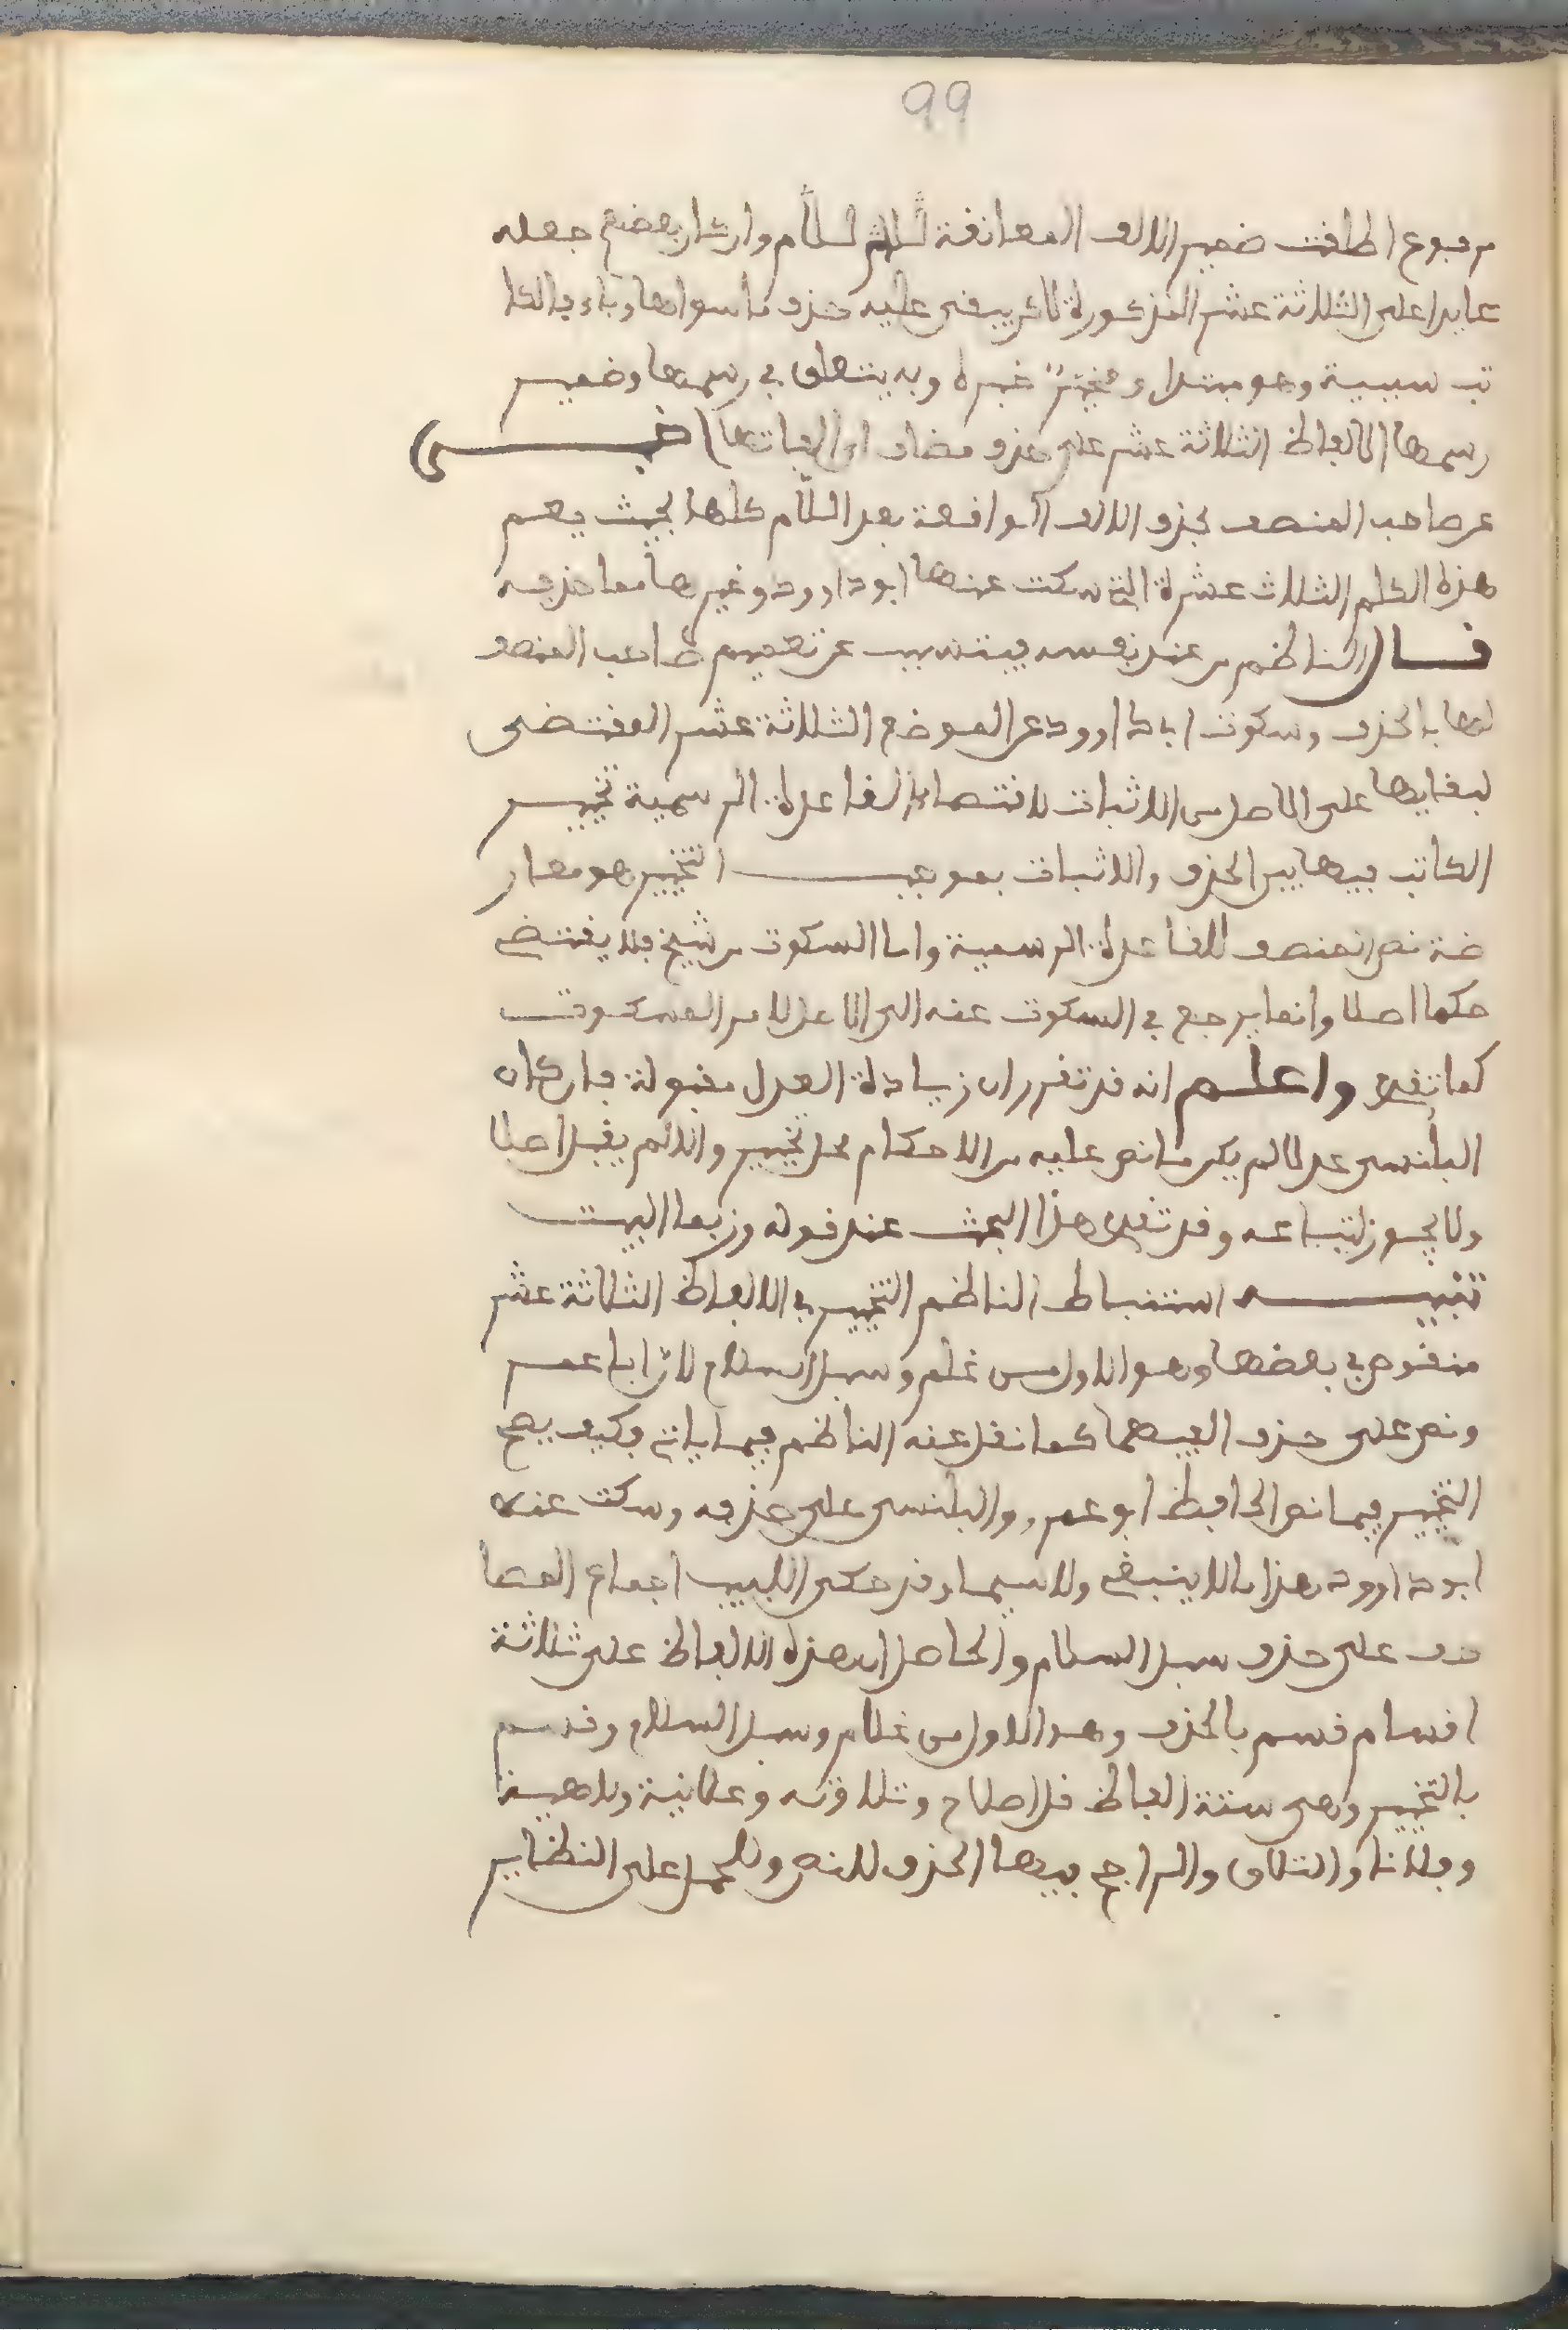 99
مرفوع اطلقت ضمير الالف المعانقة للام وان كان بعضهم جعله
عايدا على الثلاثة عشر المذكورة لاكن يبقى عليه حذف ما سواها وباء بالكا
تب سببية وهو مبتدا ومخير خبره وبه يتعلق في رسمها وضمير
رسمها الالفاظ الثلاثة عشر على حذف مضاف اي الفاتها
عن صاحب المنصف بحذف الالف الواقعة بعد اللام كلها بحيث يعم
هذه الكلم الثلاث عشرة التي سكت عنها ابو داوود وغيرها مما حذفه
قال الناظم من عند نفسه فيتسبب عن تعميم صاحب المنصف
لها بالحذف وسكوت ابي داوود عن المواضع الثلاثة عشر المقتضى
لبقايها على الاصل من الاثبات لاقتضاء القاعدة الرسمية تخيير
الكاتب فيها بين الحذف والاثبات بموجب التخيير هو معار
ضة نص المنصف للقاعدة الرسمية واما السكوت من شيخ فلا يقتضي
حكما اصلا وانما يرجع في السكوت عنه الى الاصل لا من المسكوت
كما تقدم واعلم انه قد تقرر ان زيادة العدل مقبولة فان كان
البلنسي عدلا لم يكن ما نص عليه من الاحكام محل تخيير والا لم يقبل اصلا
ولا يجوز اتباعه وقد تقدم هذا البحث عند قوله وربما البيت
تنبيه استنباط الناظم التخيير في الالفاظ الثلاثة عشر
منقوض في بعضها وهو الاول من غلم وسبل السلام لان ابا عمر
ونص على حذف الفيهما كما نقل عنه الناظم فيما ياتي فكيف يصح
التخيير فيما نص الحافظ ابو عمر والبلنسي على حذفه وسكت عنه
ابو داوود هذا مالا ينبغي ولا سيما وقد حكى اللبيب اجماع المصا
حف على حذف سبل السلام والحاصل ان هذه الالفاظ على ثلاثة
اقسام قسم بالحذف وهو الاول من غلام وسبل السلام وقسم
بالتخيير وهي ستة الفاظ قل اصلاح وتلاوته وعلانية ولاهية
وفلانا والتلاق والراجح فيها الحذف للنص وللحمل على النظاير